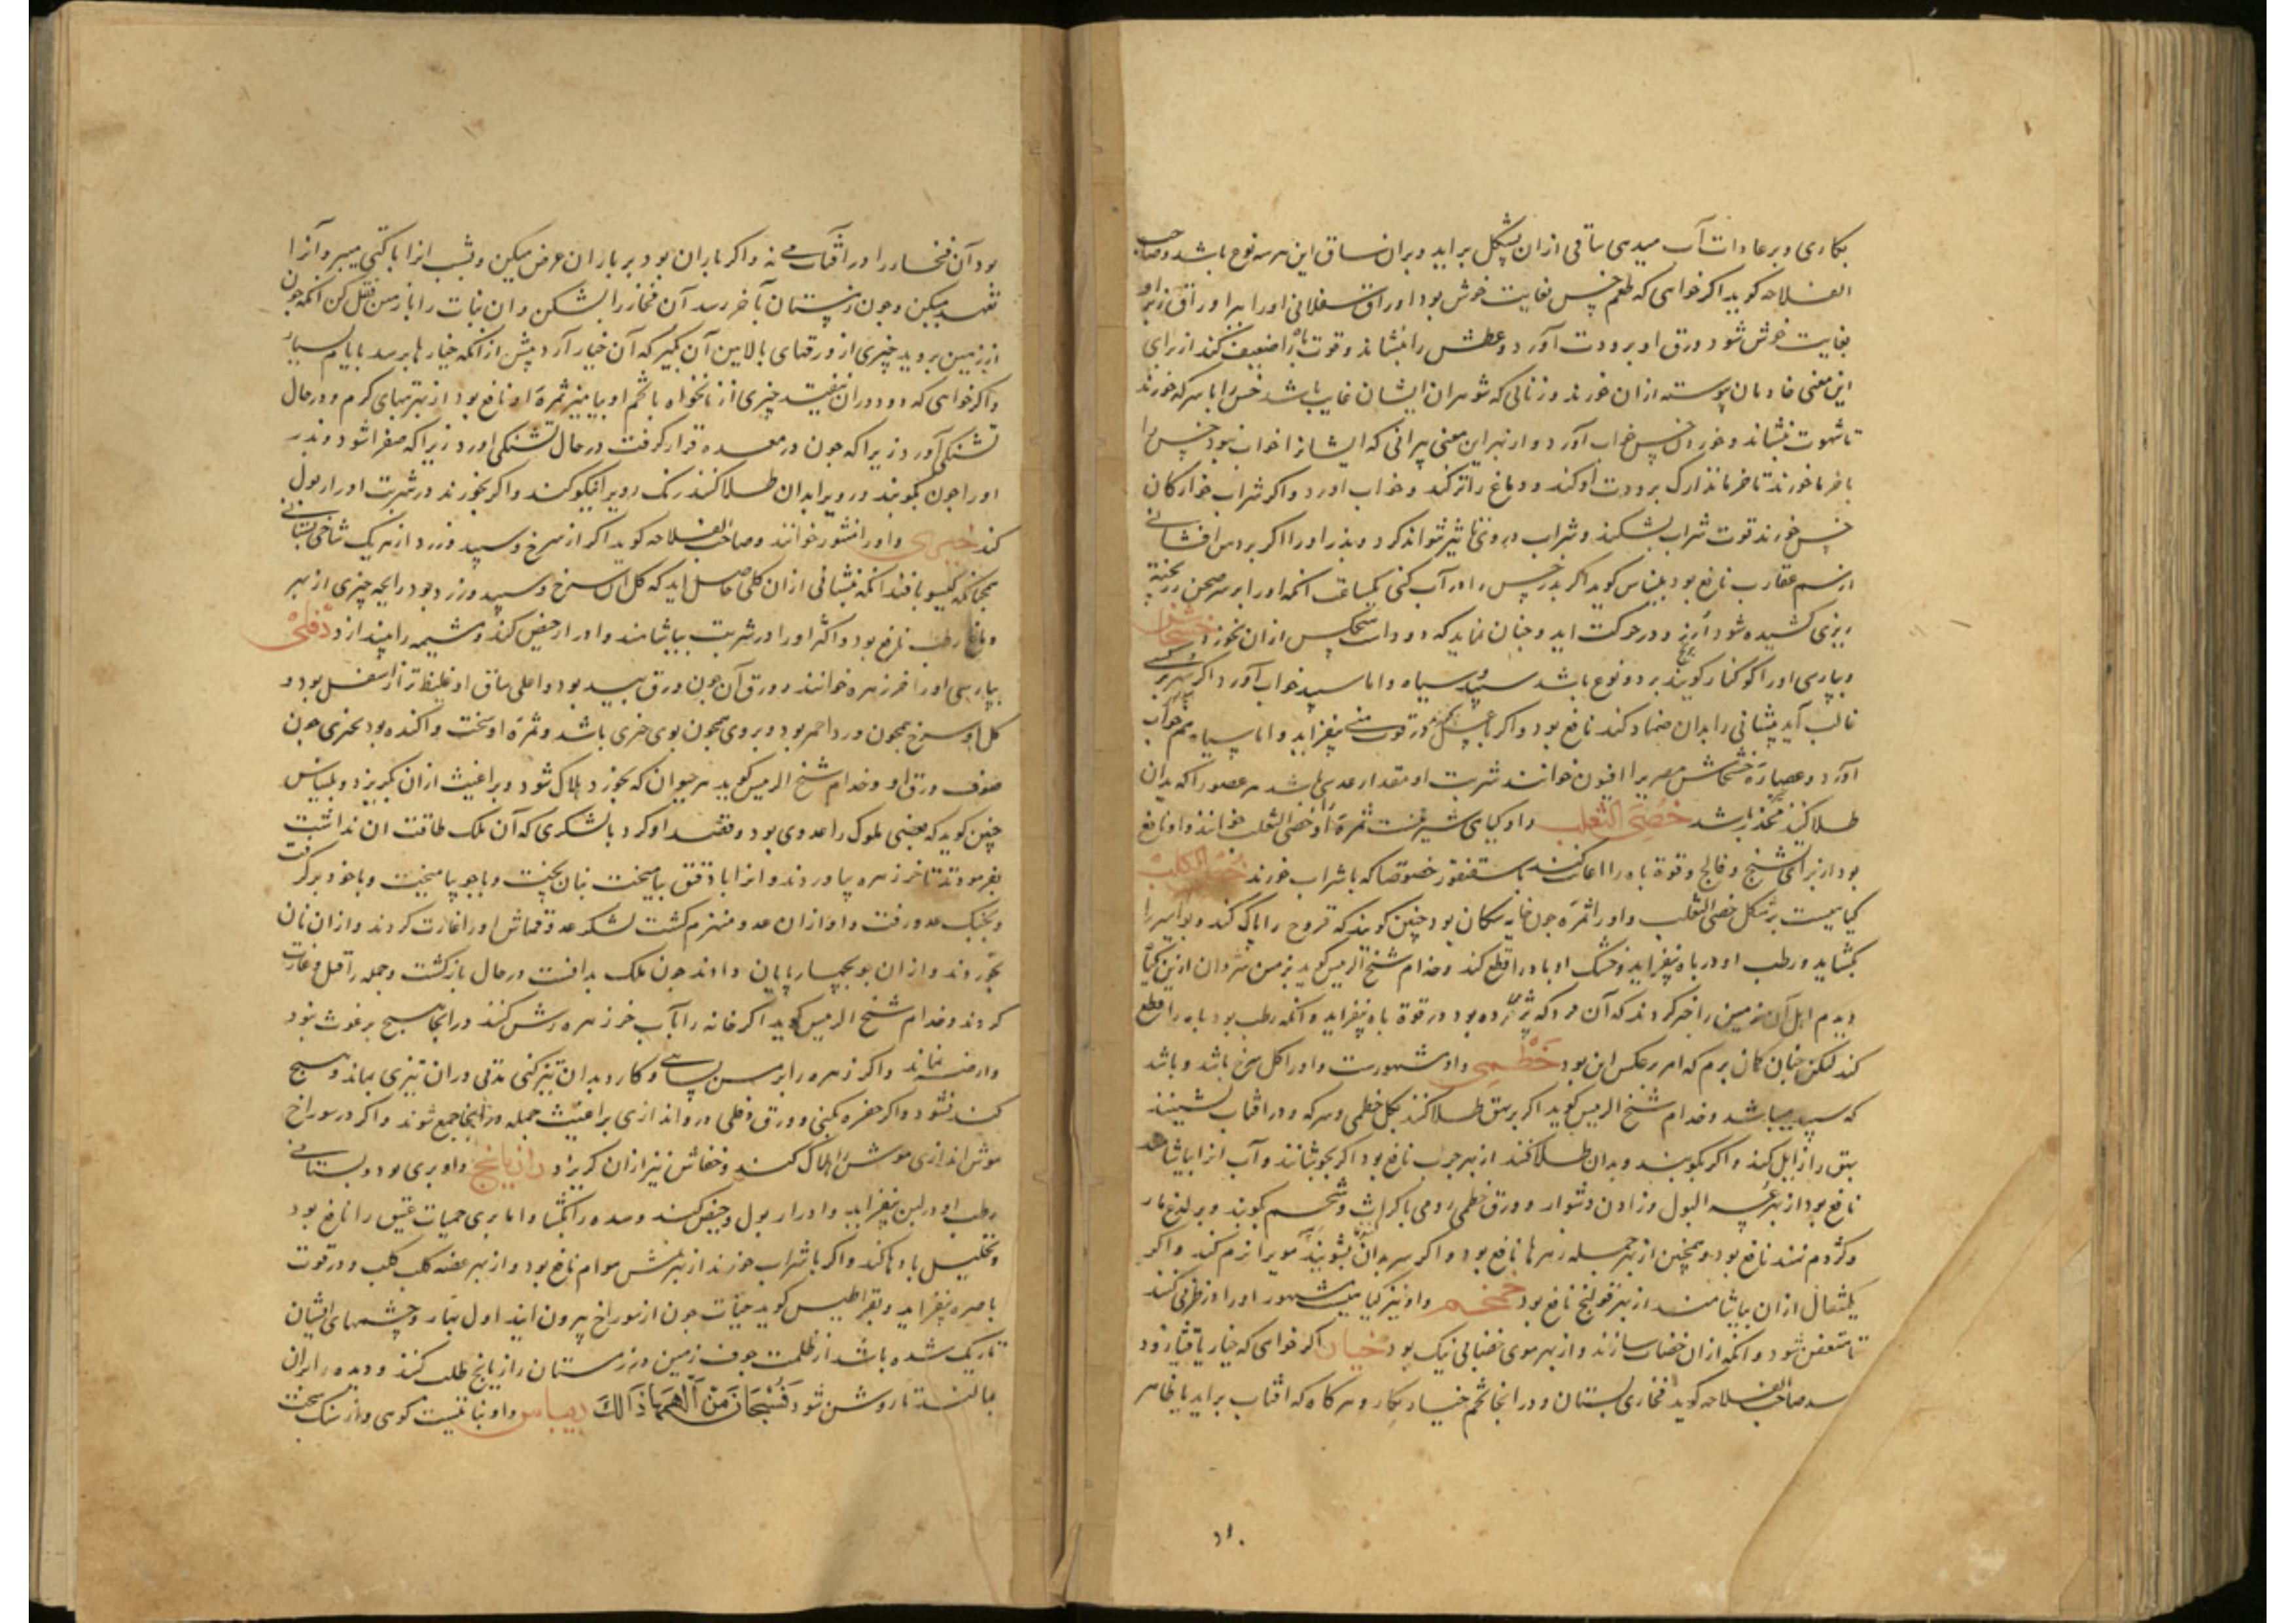 بکاری و بر عادات آب میدهی ساقی ازان بشکل براید و بران ساق این هر سه نوع باشد و صاحب
الفلاحه کوید اکر خواهی که طعم خس بغایت خوش بود اوراق سفلانی او را ببر اوراق زبر او
بغایت خوش شود و ورق او برودت آورد و عطش را بنشاند و قوت باه را ضعیف کند از برای
این معنی خادمان پیوسته ازان خورند و زنانی که شوهران ایشان غایب باشد خس را با سرکه خورند
تا شهوت بنشاند و خوردن خس خواب آورد و از بهر این معنی پیرانی که ایشانرا خواب نبود خس را
با خرما خورند تا خرما تدارک برودت او کند و دماغ را تر کند و خواب اورد و اکر شراب خوارکان
خس خورند قوت شراب بشکند و شراب درو تاثیر نتواند کرد و بذر او را اکر بر من افشانی
از سم عقارب نافع بود بلیناس کوید اکر بذر خس را در آب کنی یکساعت انکه او را بر سر صحن برنج پخته
ریزی کشیده شود و در حرکت اید و چنان نماید که دود است هیچکس ازان نخورد خشخاش
و بپارسی او را کوکنار کویند بر دو نوع باشد سپید و سیاه و اما سپید خواب آورد اکر سهر بر کسی
غالب آید پیشانی را بدان ضماد کند نافع بود و اکر با عسل خورد قوت منی بیفزاید و اما سیاه هم خواب
آورد و عصاره خشخاش مصری را افیون خوانند شربت او مقدار عدسی باشد هر عضو را که بدان
طلا کنند مخدر باشد خصی الثعلب و او کیاهی شیرینست ثمره او را خصی الثعلب خوانند و او نافع
بود از برای تشنج و فالج و قوة باه را اعانت کند با سقنقور خصوصا که با شراب خورند خصی الکلب
کیاهیست بر شکل خصی الثعلب و او را ثمره چون خایه سکان بود چنین کویند که قروح را پاک کند و بواسیر را
بکشاید و رطب او در باه بیفزاید و خشک او باه را قطع کند و خدام شیخ الرئیس کوید بزمین شروان ازین کیاه
دیدم اهل آن زمین را خبر کردند که آن مرد که پژمرده بود در قوة باه بیفزاید و انکه رطب بود باه را قطع
کند لیکن چنان کمان برم که امر بر عکس این بود خطمی و او مشهورست و او را کل سرخ باشد و باشد
که سپید باشد و خدام شیخ الرئیس کوید اکر بر بهق طلا کنند بکل خطمی و سرکه و در افتاب نشینند
بهق را زایل کند و اکر بکوبند و بدان طلا کنند از بهر جرب نافع بود اکر بجوشانند و آب انرا بیاشامند
نافع بود از بهر عسر البول و زادن دشوار و ورق خطمی رومی با کراث و شحم کوبند و بر لدغ مار
و کژدم نهند نافع بود و همچنین از بهر جمله زهرها نافع بود و اکر سر بدان بشویند مویرا نرم کند و اکر
یکمثقال ازان بیاشامند از بهر قولنج نافع بود خمخم و او نیز کیاهیست مشهور او را در ظرفی کنند
تا متعفن شود و انکه ازان خضاب سازند و از بهر موی خضابی نیک بود خیار اکر خواهی که خیار یا قثا زود
رسد صاحب الفلاحه کوید فخاری بستان و در انجا تخم خیار بکار و هر کاه که افتاب براید یا ظاهر
بود آن فخار را در افتاب می نه و اکر باران بود بر باران عرض میکن و بشب انرا با کنی میبر و آنرا
تعهد میکن و چون زمستان بآخر رسد آن فخار را بشکن و ان نبات را با زمین نقل کن انکه چون
از زمین بروید چیزی از ورقهای بالایین آن بکیر که آن خیار آرد پیش از انکه خیارها برسد بایام بسیار
و اکر خواهی که دود دران نیفتد چیزی از نانخواه با تخم او بیامیز ثمره او نافع بود از بهر تبهای کرم و در حال
تشنکی آورد زیرا که چون در معده قرار کرفت در حال تشنکی اورد زیرا که صفرا شود و بذر
او را چون بکوبند و رویرا بدان طلا کنند رنک رویرا نیکو کند و اکر بخورند در شربت او ادرار بول
کند خیری و او را منثور خوانند و صاحب الفلاحه کوید اکر از سرخ و سپید و زرد از هر یک شاخی بستانی
همچنانکه کیسو بافند انکه بنشانی ازان کلی حاصل اید که کل ان سرخ و سپید و زرد بود رایحه خیری از بهر
دماغ رطب نافع بود و اکثر او را در شربت بیاشامند و ادرار حیض کند و مشیمه را بیندازد دفلی
بپارسی او را خرزهره خوانند و ورق آن چون ورق بید بود و اعلی ساق او غلیظ تر از اسفل بود و
کل او سرخ همچون ورد احمر بود و بروی همچون موی خیری باشد و ثمره او سخت و آکنده بود بچیزی چون
صوف ورق او و خدام شیخ الرئیس کوید هر حیوان که بخورد هلاک شود و براغیث ازان بکریزد و بلیناس
چنین کوید که بعضی ملوک را عدوی بود و قصد او کرد با لشکری که آن ملک طاقت ان نداشت
بفرمود تا خرزهره بیاوردند و انرا با دقیق بیامیخت نبان بپخت و با جو بیامیخت و با خود برکرفت
و بجنک عدو رفت و او ازان عدو منهزم کشت لشکر عدو قماش او را غارت کردند و ازان نان
بخوردند و ازان جو بچهارپایان دادند چون ملک بدانست در حال بازکشت و جمله را قتل و غارت
کردند و خدام شیخ الرئیس کوید اکر خانه را بآب خرزهره رش کنند در انجا هیچ برغوث نبود
و ارضه نماند و اکر زهره را بر مسن بسایی و کارد بدان تیز کنی مدتی دران تیزی بماند و هیچ
کند نشود و اکر حفره بکنی و ورق دفلی درو اندازی براغیث جمله در انجا جمع شوند و اکر در سوراخ
موش اندازی موش را هلاک کند و خفاش نیز ازان کریزد رازیانج و او بری بود و بستانی
رطب او در لبن بیفزاید و ادرار بول و حیض کند و سده را بکشاید و اما بری حمیات عتیق را نافع بود
و تحلیل بادها کند و اکر با شراب خورند از نهش هوام نافع بود و از بهر عضه کلب کلب و در قوت
باصره بیفزاید و بقراطیس کوید حیات چون از سوراخ بیرون ایند اول بهار و چشمهای ایشان
تاریک شده باشد از ظلمت جوف زمین در زمستان رازیانج طلب کنند و دیده را بران
مالند تا روشن شود فَسُبْحَانَ مَنْ أَلْهَمَهَا ذَالِكَ دیباس و او نباتیست کوهی و از سنک سخت
۱۱۰